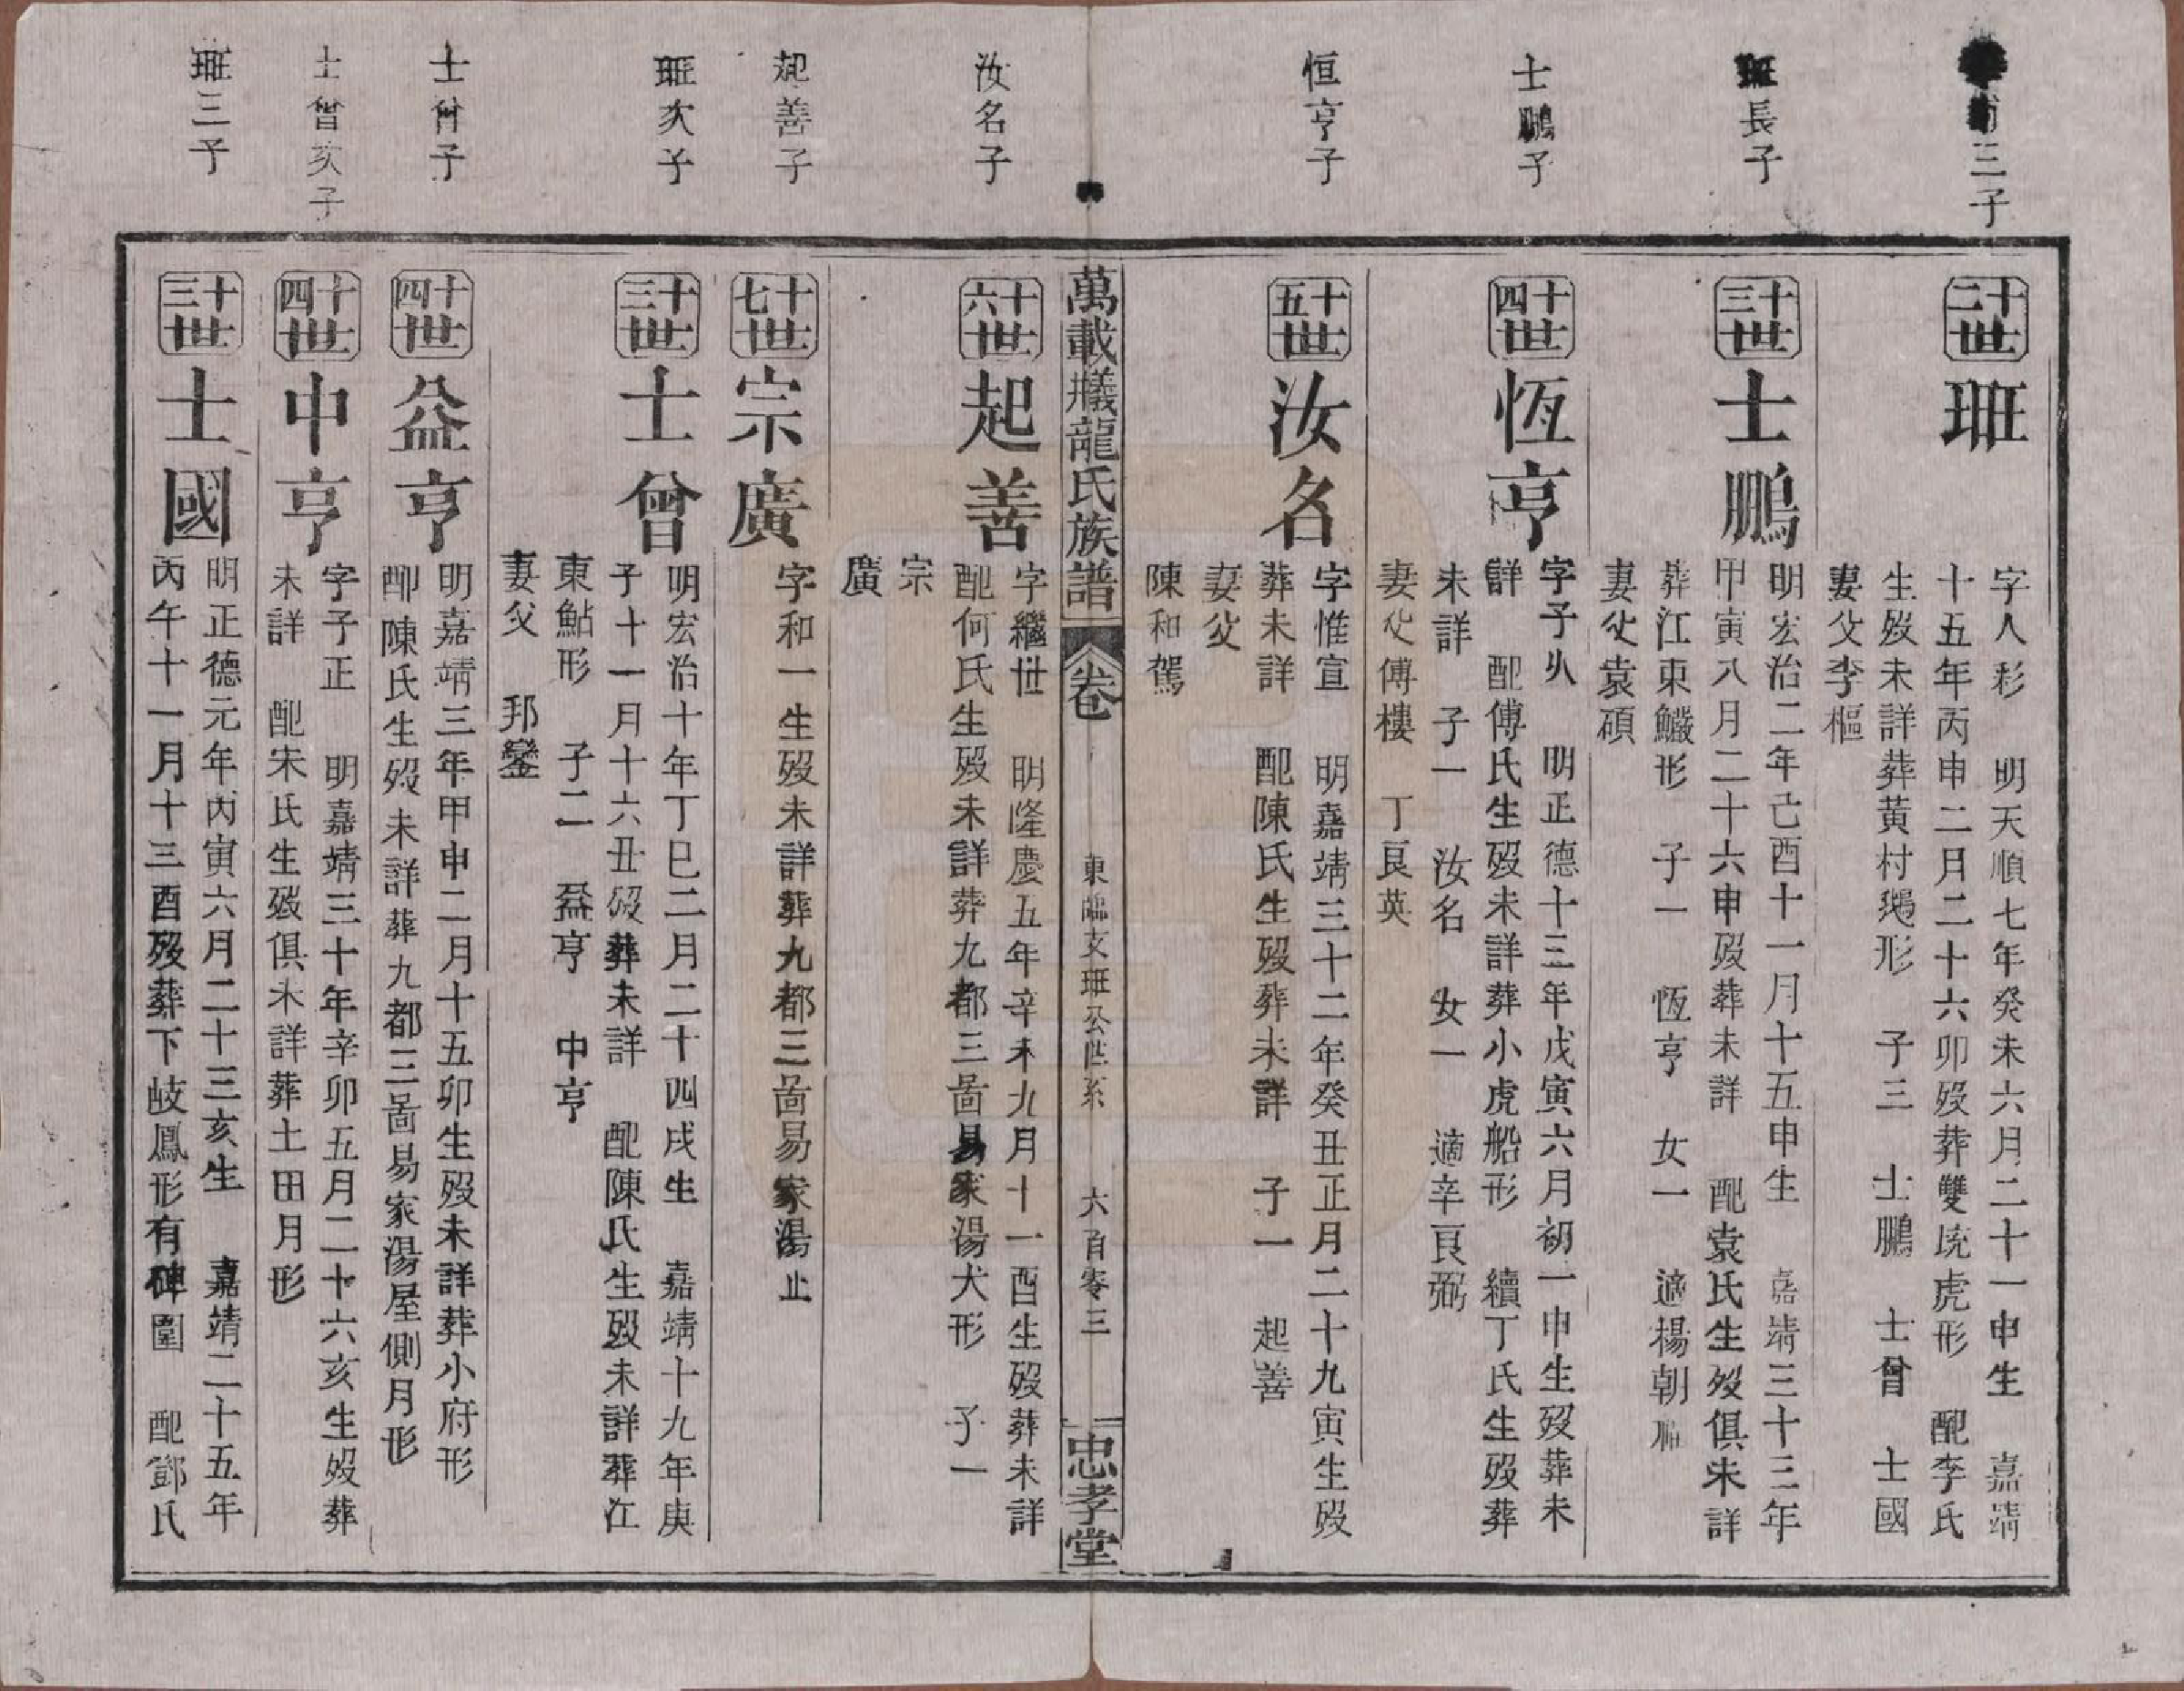 三子
十二世
班
字人彩 明天順七年癸未六月二十一申生 嘉靖
十五年丙申二月二十六卯歿葬雙坑虎形 配李氏
生歿未詳葬黃村形 子三 士鵬 士曾 士國
妻父李樞
班長子
十三世
士鵬
明宏治二年己酉十一月十五申生 嘉靖三十三年
甲寅八月二十六申歿葬未詳 配袁氏生歿俱未詳
葬江東形 子一 恆亨 女一 適楊朝
妻父袁碩
士鵬子
十四世
恆亨
字子火 明正德十三年戊寅六月初一申生歿葬未
詳 配傅氏生歿未詳葬小虎船形 續丁氏生歿葬
未詳 子一 汝名 女一 適辛良弼
妻父傅樓 丁良英
恒亨子
十五世
汝名
字惟宣 明嘉靖三十二年癸丑正月二十九寅生歿
葬未詳 配陳氏生歿葬未詳 子一 起善
妻父
陳和駕
萬載㰕龍氏族譜 卷 東 支班公世系 六百零三 忠孝堂
汝名子
十六世
起善
字繼世 明隆慶五年辛未九月十一酉生歿葬未詳
配何氏生歿未詳葬九都三啚易家湯犬形 子一
宗
廣
起善子
十七世
宗廣
字和一生歿未詳葬九都三啚易家湯止
班次子
十三世
士曾
明宏治十年丁巳二月二十四戌生 嘉靖十九年庚
子十一月十六丑歿葬未詳 配陳氏生歿未詳葬江
東鮎形 子二 益亨 中亨
妻父 邦鑾
士曾子
十四世
益亨
明嘉靖三年甲申二月十五卯生歿未詳葬小府形
配陳氏生歿未詳葬九都三啚易家湯屋側月形
士曾次子
十四世
中亨
字子正 明嘉靖三十年辛卯五月二十六亥生歿葬
未詳 配宋氏生歿俱未詳葬土田月形
班三子
十三世
士國
明正德元年丙寅六月二十三亥生 嘉靖二十五年
丙午十一月十三酉歿葬下岐鳳形有碑圍 配鄧氏